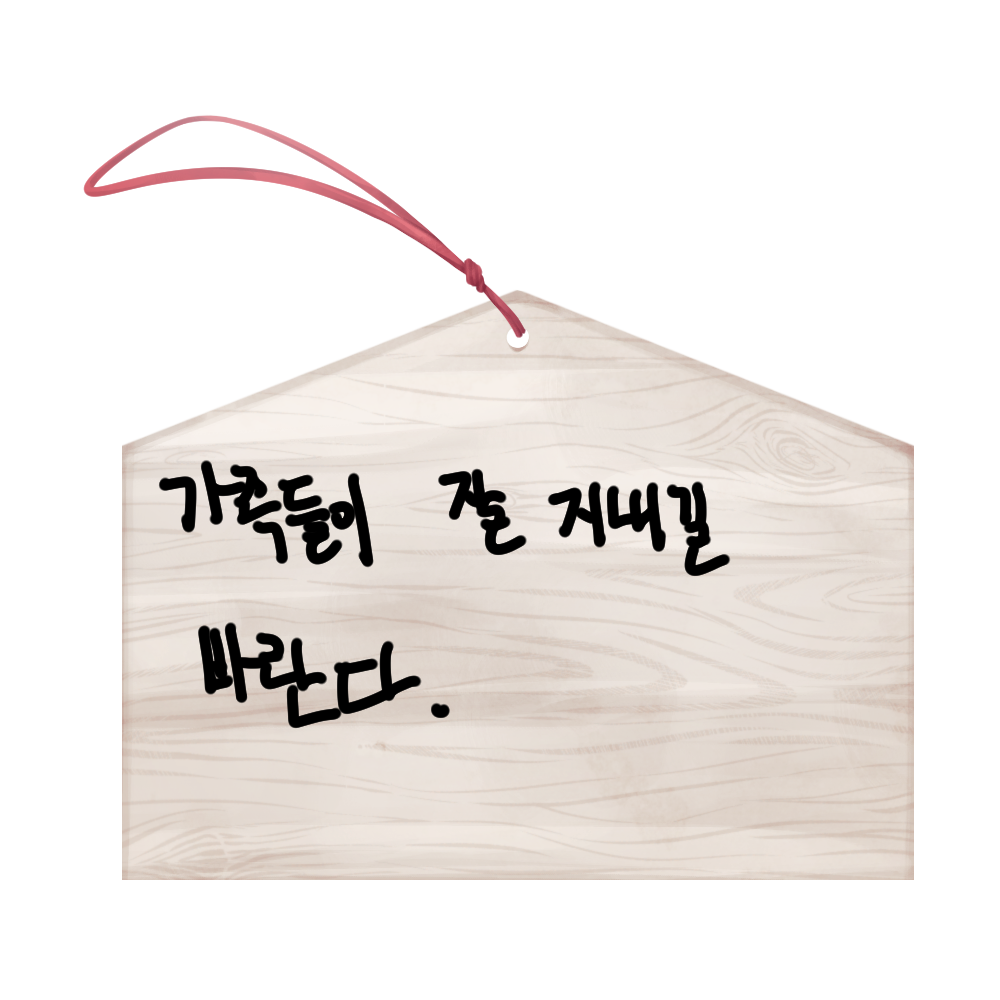 가족들이 잘 지내길
바란다.